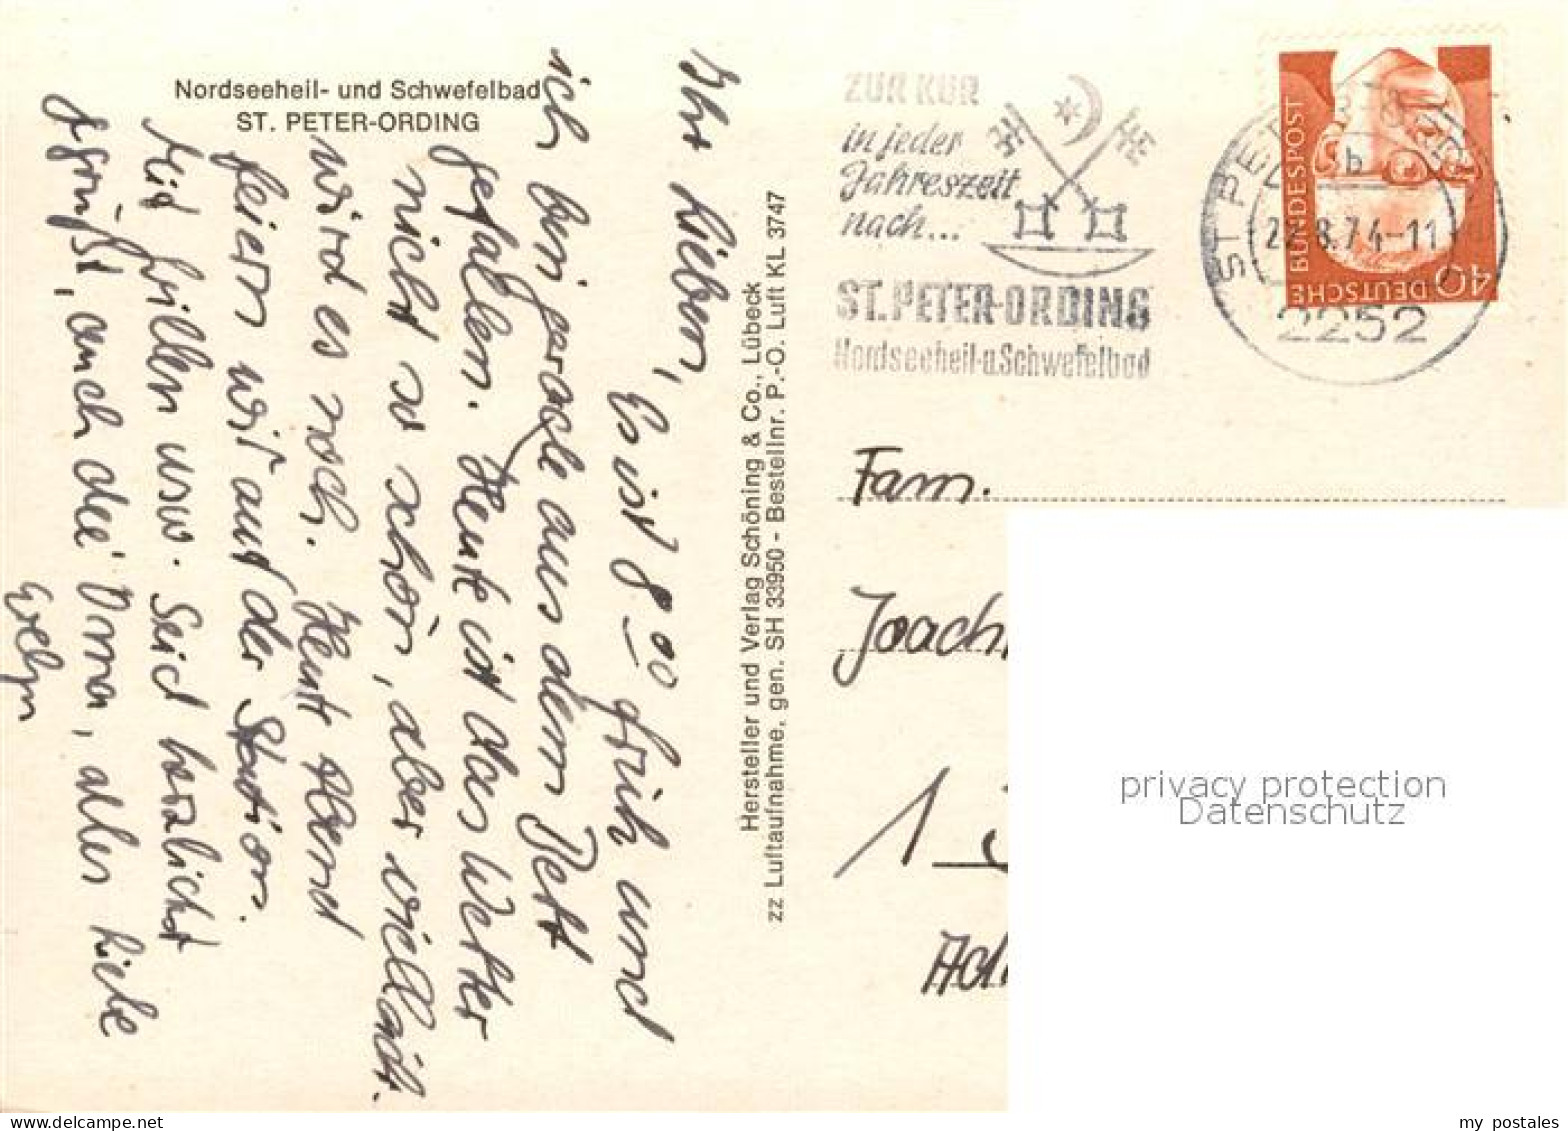 Nordseeheil- und Schwefelbad
ST. PETER-ORDING
Ihr Lieben,
Es ist 8 00 früh und
ich bin gerade aus dem Bett
gefallen. Heute ist das Wetter
nicht so schön, aber vielleicht
wird es noch. Heute Abend
feiern wir auf der Station.
Mit Grillen usw. Seid herzlichst
gegrüßt, auch die Oma, alles Liebe
Evelyn
Hersteller und Verlag Schöning & Co., Lübeck
zz Luftaufnahme, gen. SH 33950 - Bestellnr. P.-O. Luft KL 3747
ZUR KUR
in jeder
Jahreszeit
nach...
ST. PETER-ORDING
Nordseeheil-u.Schwefelbad
ST PETER-ORDING
22.8.74-11
2252
DEUTSCHE
BUNDESPOST
40
Fam.
Joach
1
privacy protection
Datenschutz
my postales